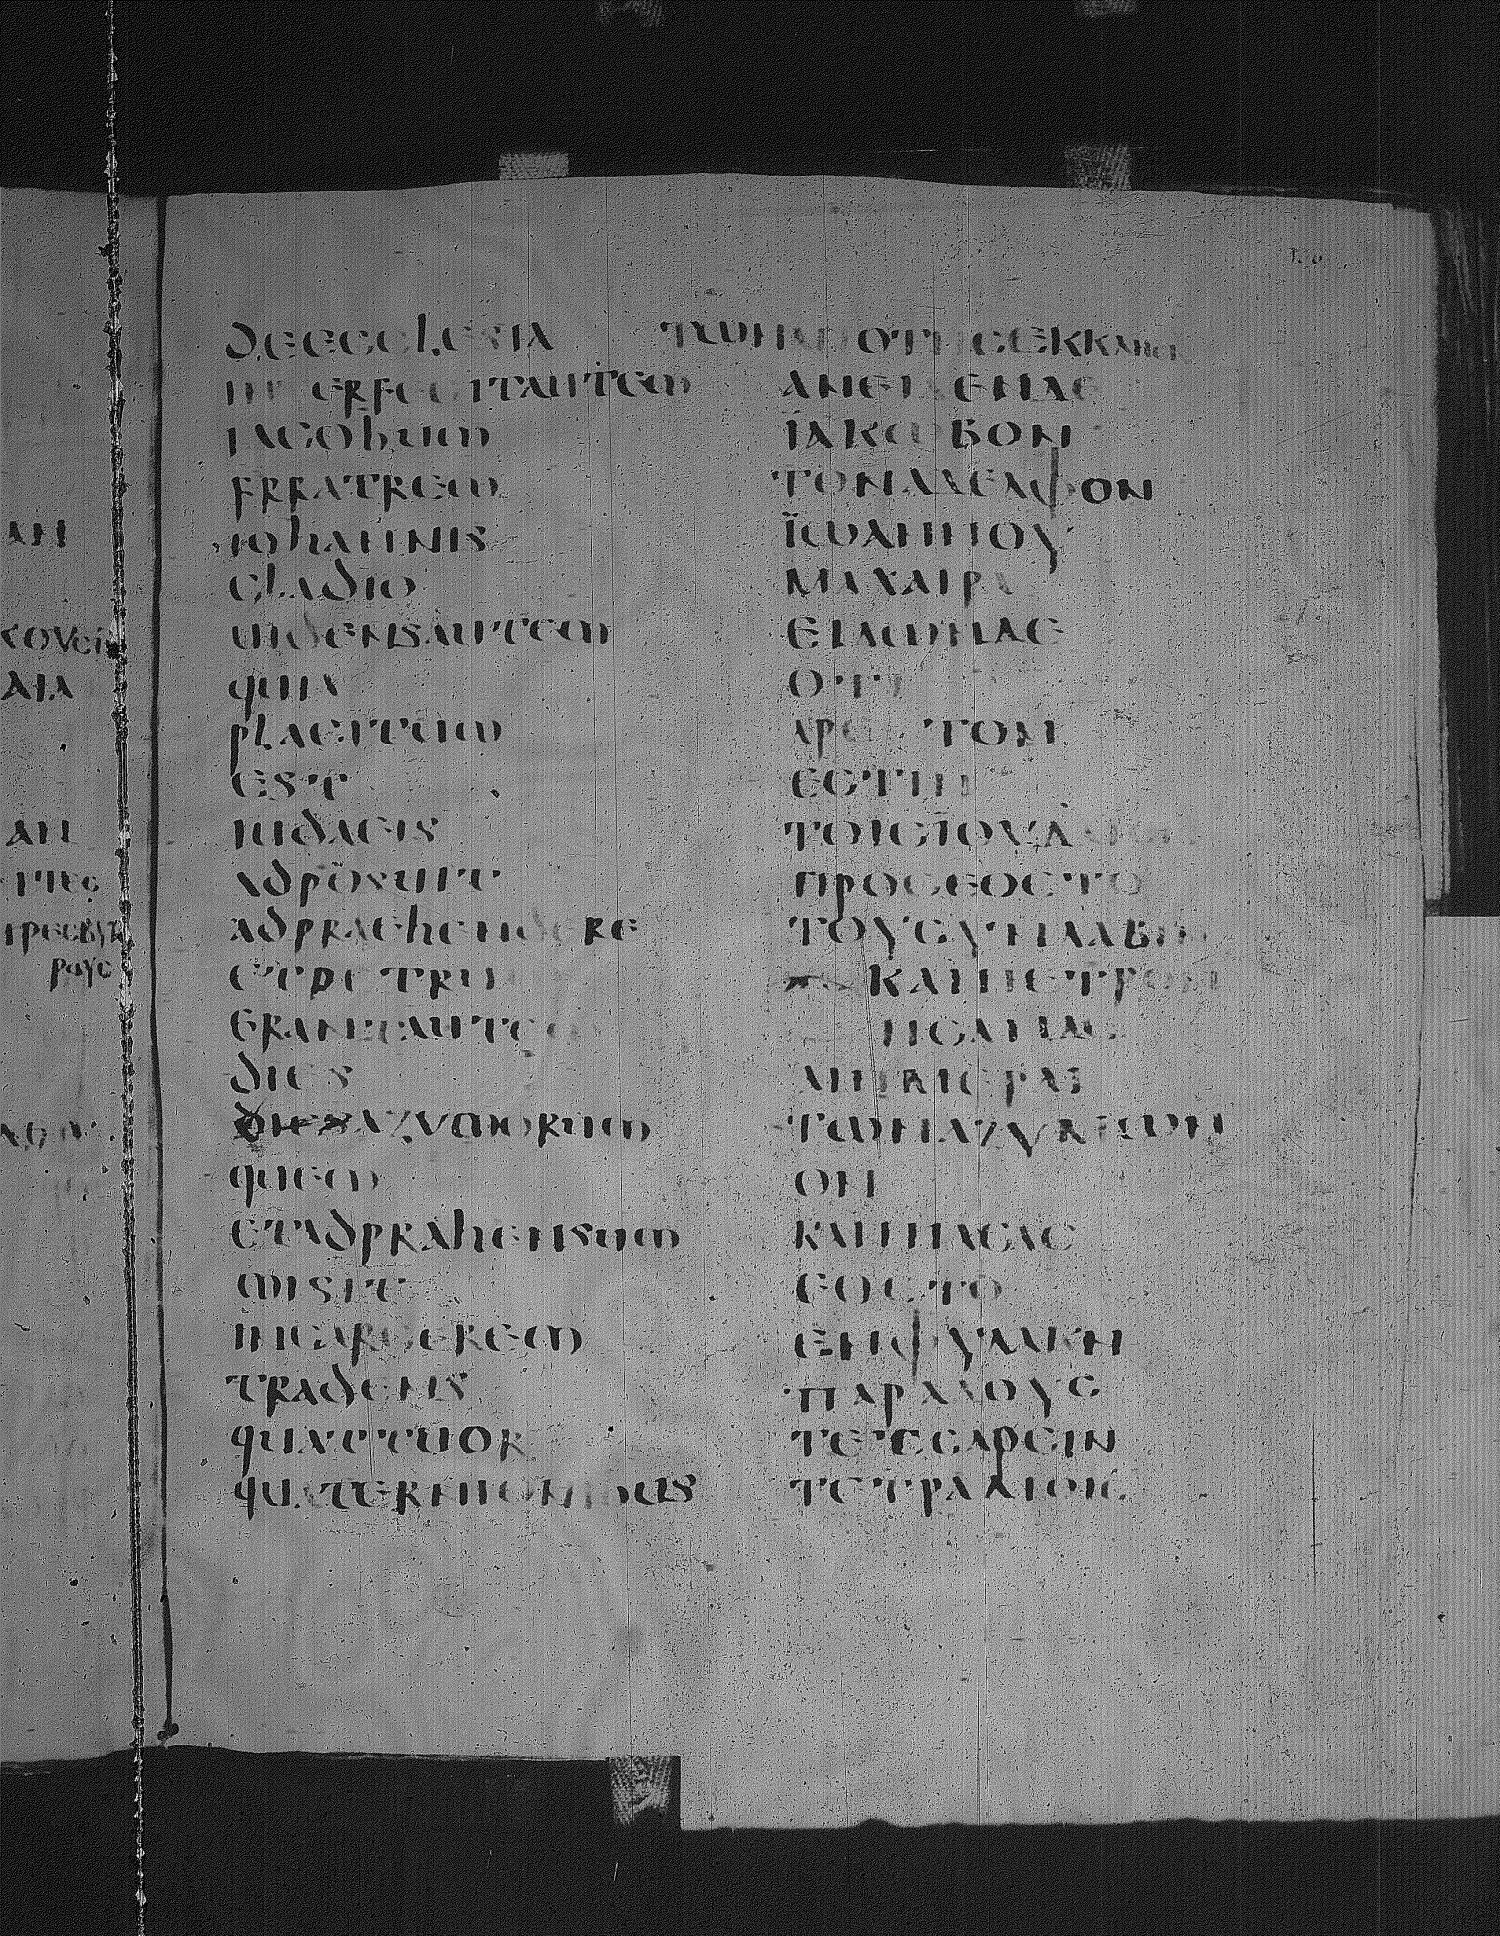 deecclesia
interfecitautem
iacobum
fratrem
iohannis
gladio
uidensautem
quia
placitum
est
iudaeis
adposuit
adpraehendere
etpetrum
eranteautem
dies
azymorum
quem
etadprahensum
misit
incarcerem
tradens
quattuor
quaternionibus
ΤΩΝΑΠΟΤΗϹΕΚΚΛΗϹΙ
ΑΝΕΙΛΕΝΔΕ
ΪΑΚΩΒΟΝ
ΤΟΝΑΔΕΛΦΟΝ
ΪΩΑΝΝΟΥ
ΜΑΧΑΙΡΑ
ΕΙΔΩΝΔΕ
ΟΤΙ
ΑΡΕϹΤΟΝ
ΕϹΤΙΝ
ΤΟΙϹΪΟΥΔΑΙΟΙϹ
ΠΡΟϹΕΘΕΤΟ
ΤΟΥϹΥΝΛΑΒΙΝ
ΚΑΙΠΕΤΡΟΝ
ΗϹΑΝΔΕ
ΑΙΗΜΕΡΑΙ
ΤΩΝΑΖΥΜΩΝ
ΟΝ
ΚΑΙΠΙΑϹΑϹ
ΕΘΕΤΟ
ΕΝΦΥΛΑΚΗ
ΠΑΡΑΔΟΥϹ
ΤΕϹϹΑΡϹΙΝ
ΤΕΤΡΑΔΙΟΙϹ